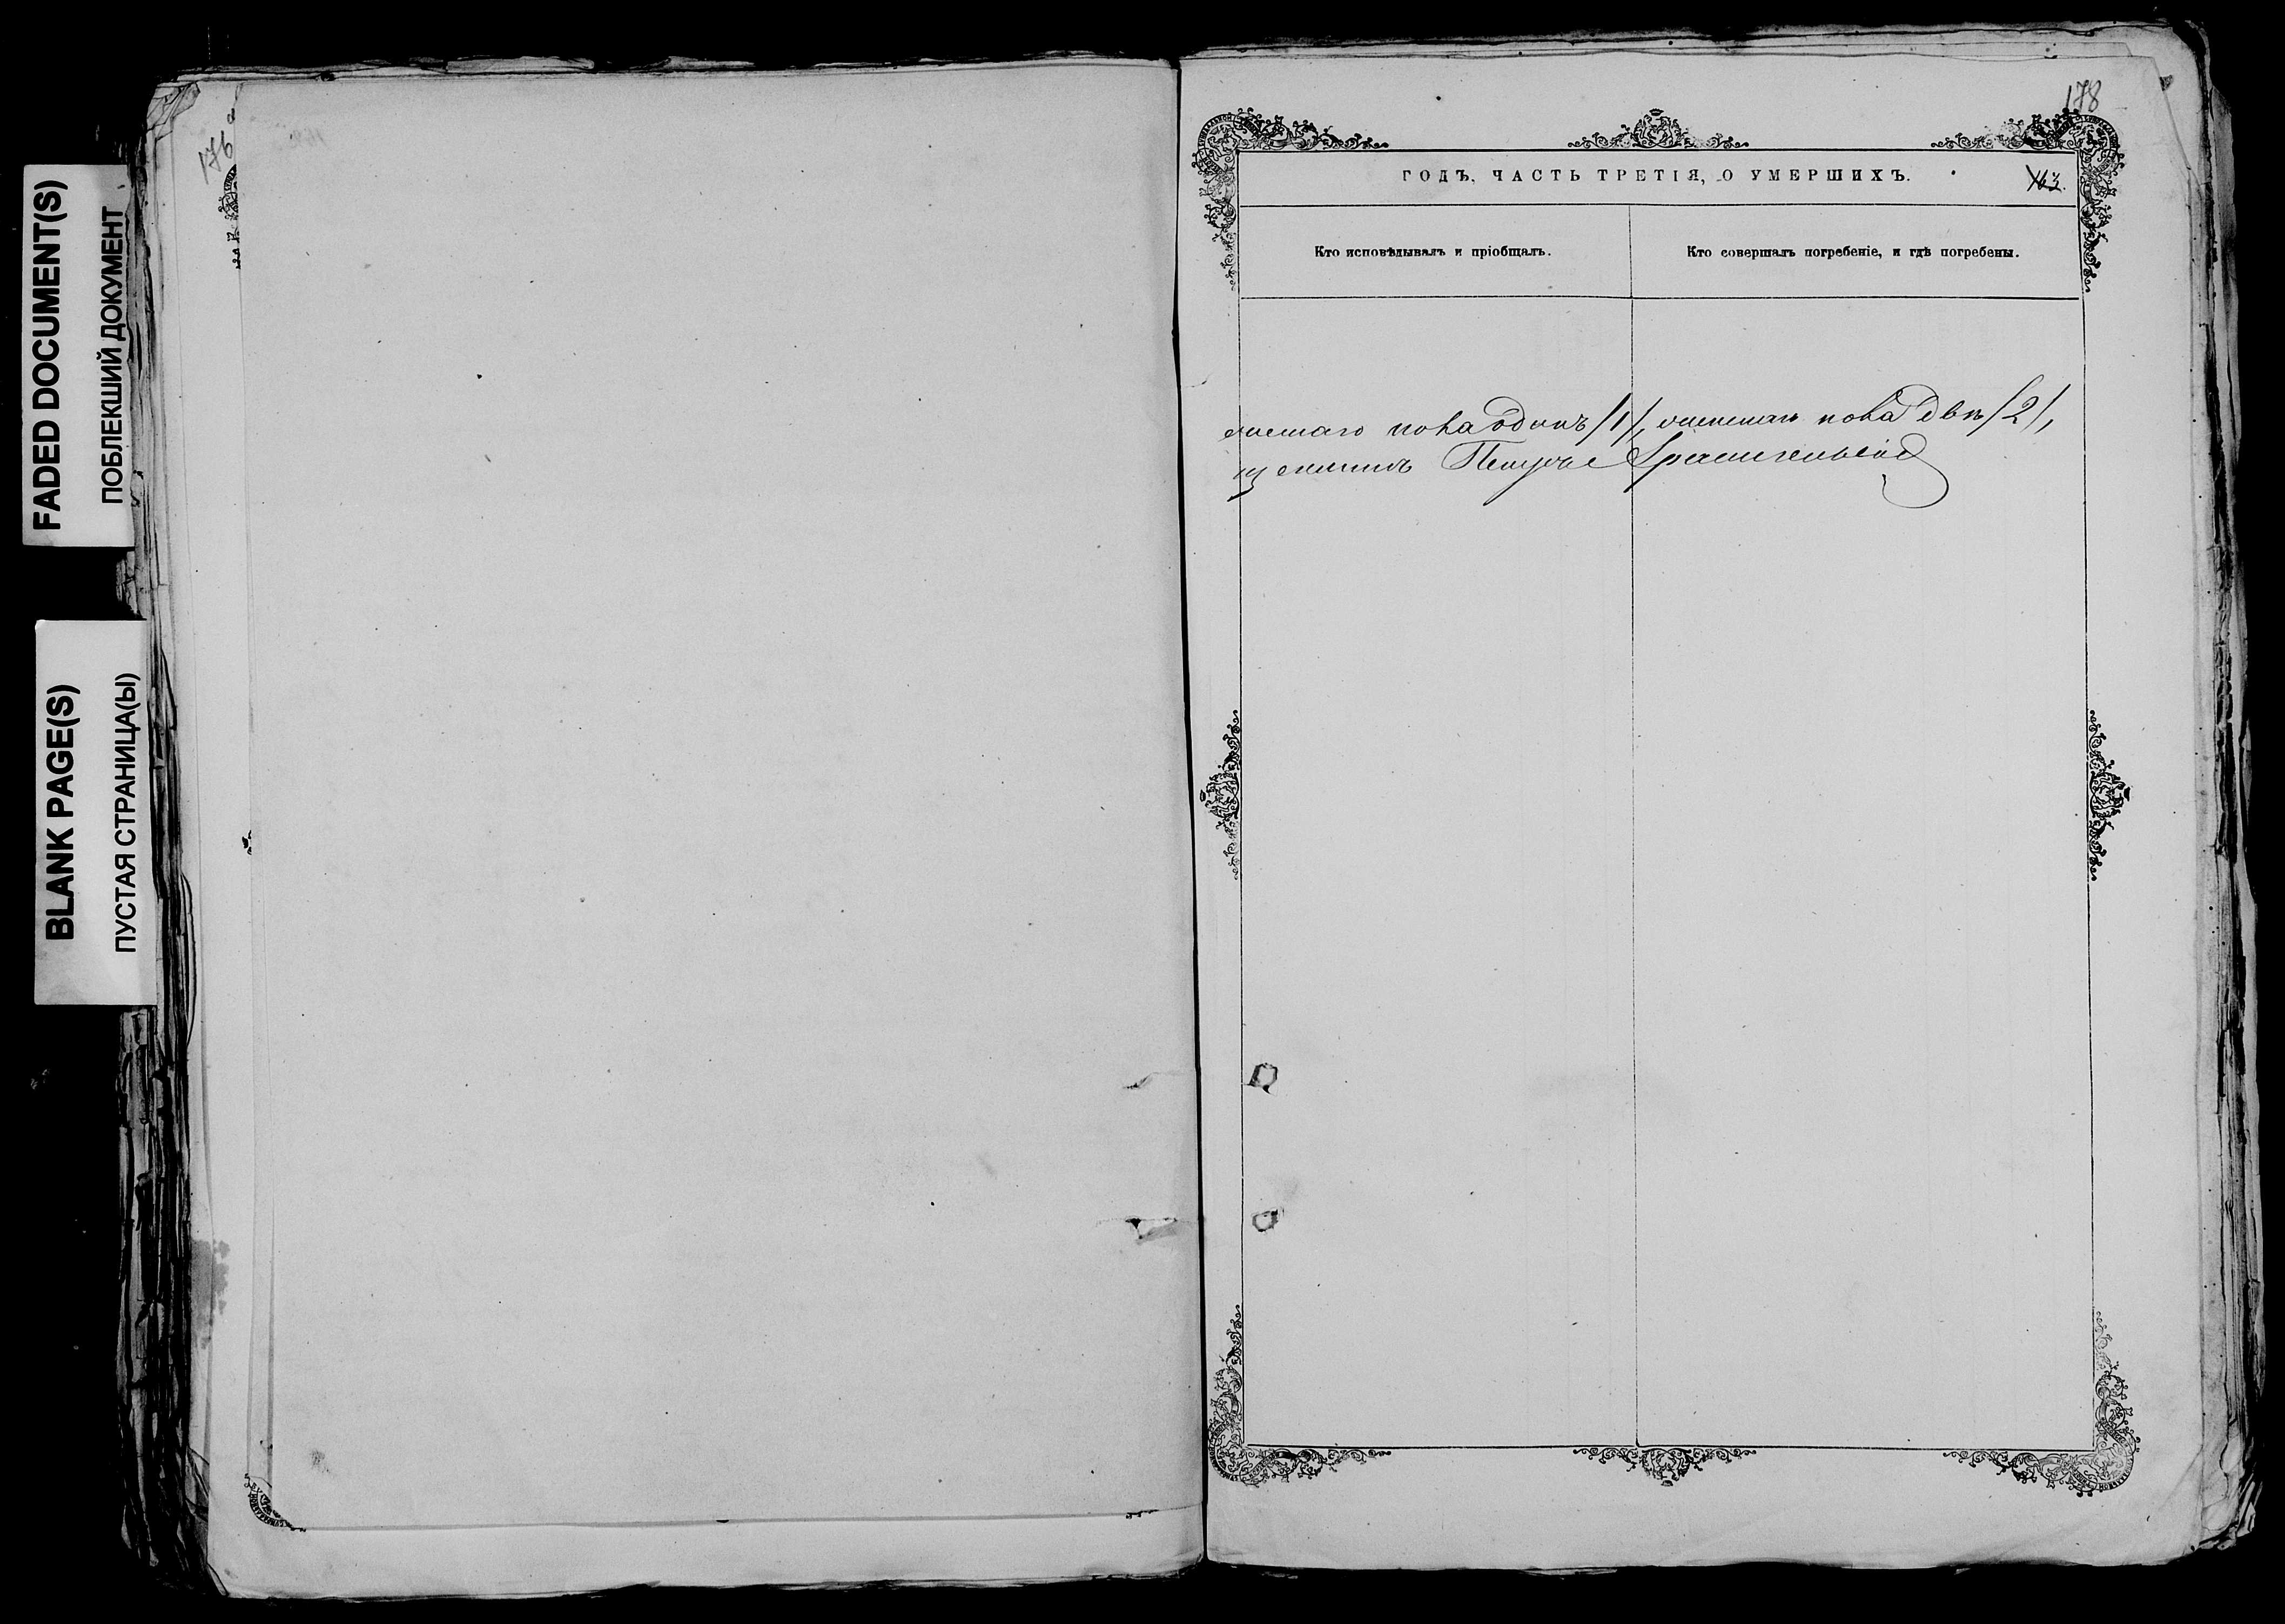 FADED DOCUMENT(S)
ПОБЛЕКШИЙ ДОКУМЕНТ
BLANK PAGE(S)
ПУСТАЯ СТРАНИЦА(Ы)
176
178
ГОДЪ, ЧАСТЬ ТРЕТІЯ, О УМЕРШИХЪ.
163.
Кто исповѣдывалъ и пріобщалъ.
Кто совершалъ погребеніе, и гдѣ погребены.
пола одинъ /1/, женскаго пола двѣ /2/,